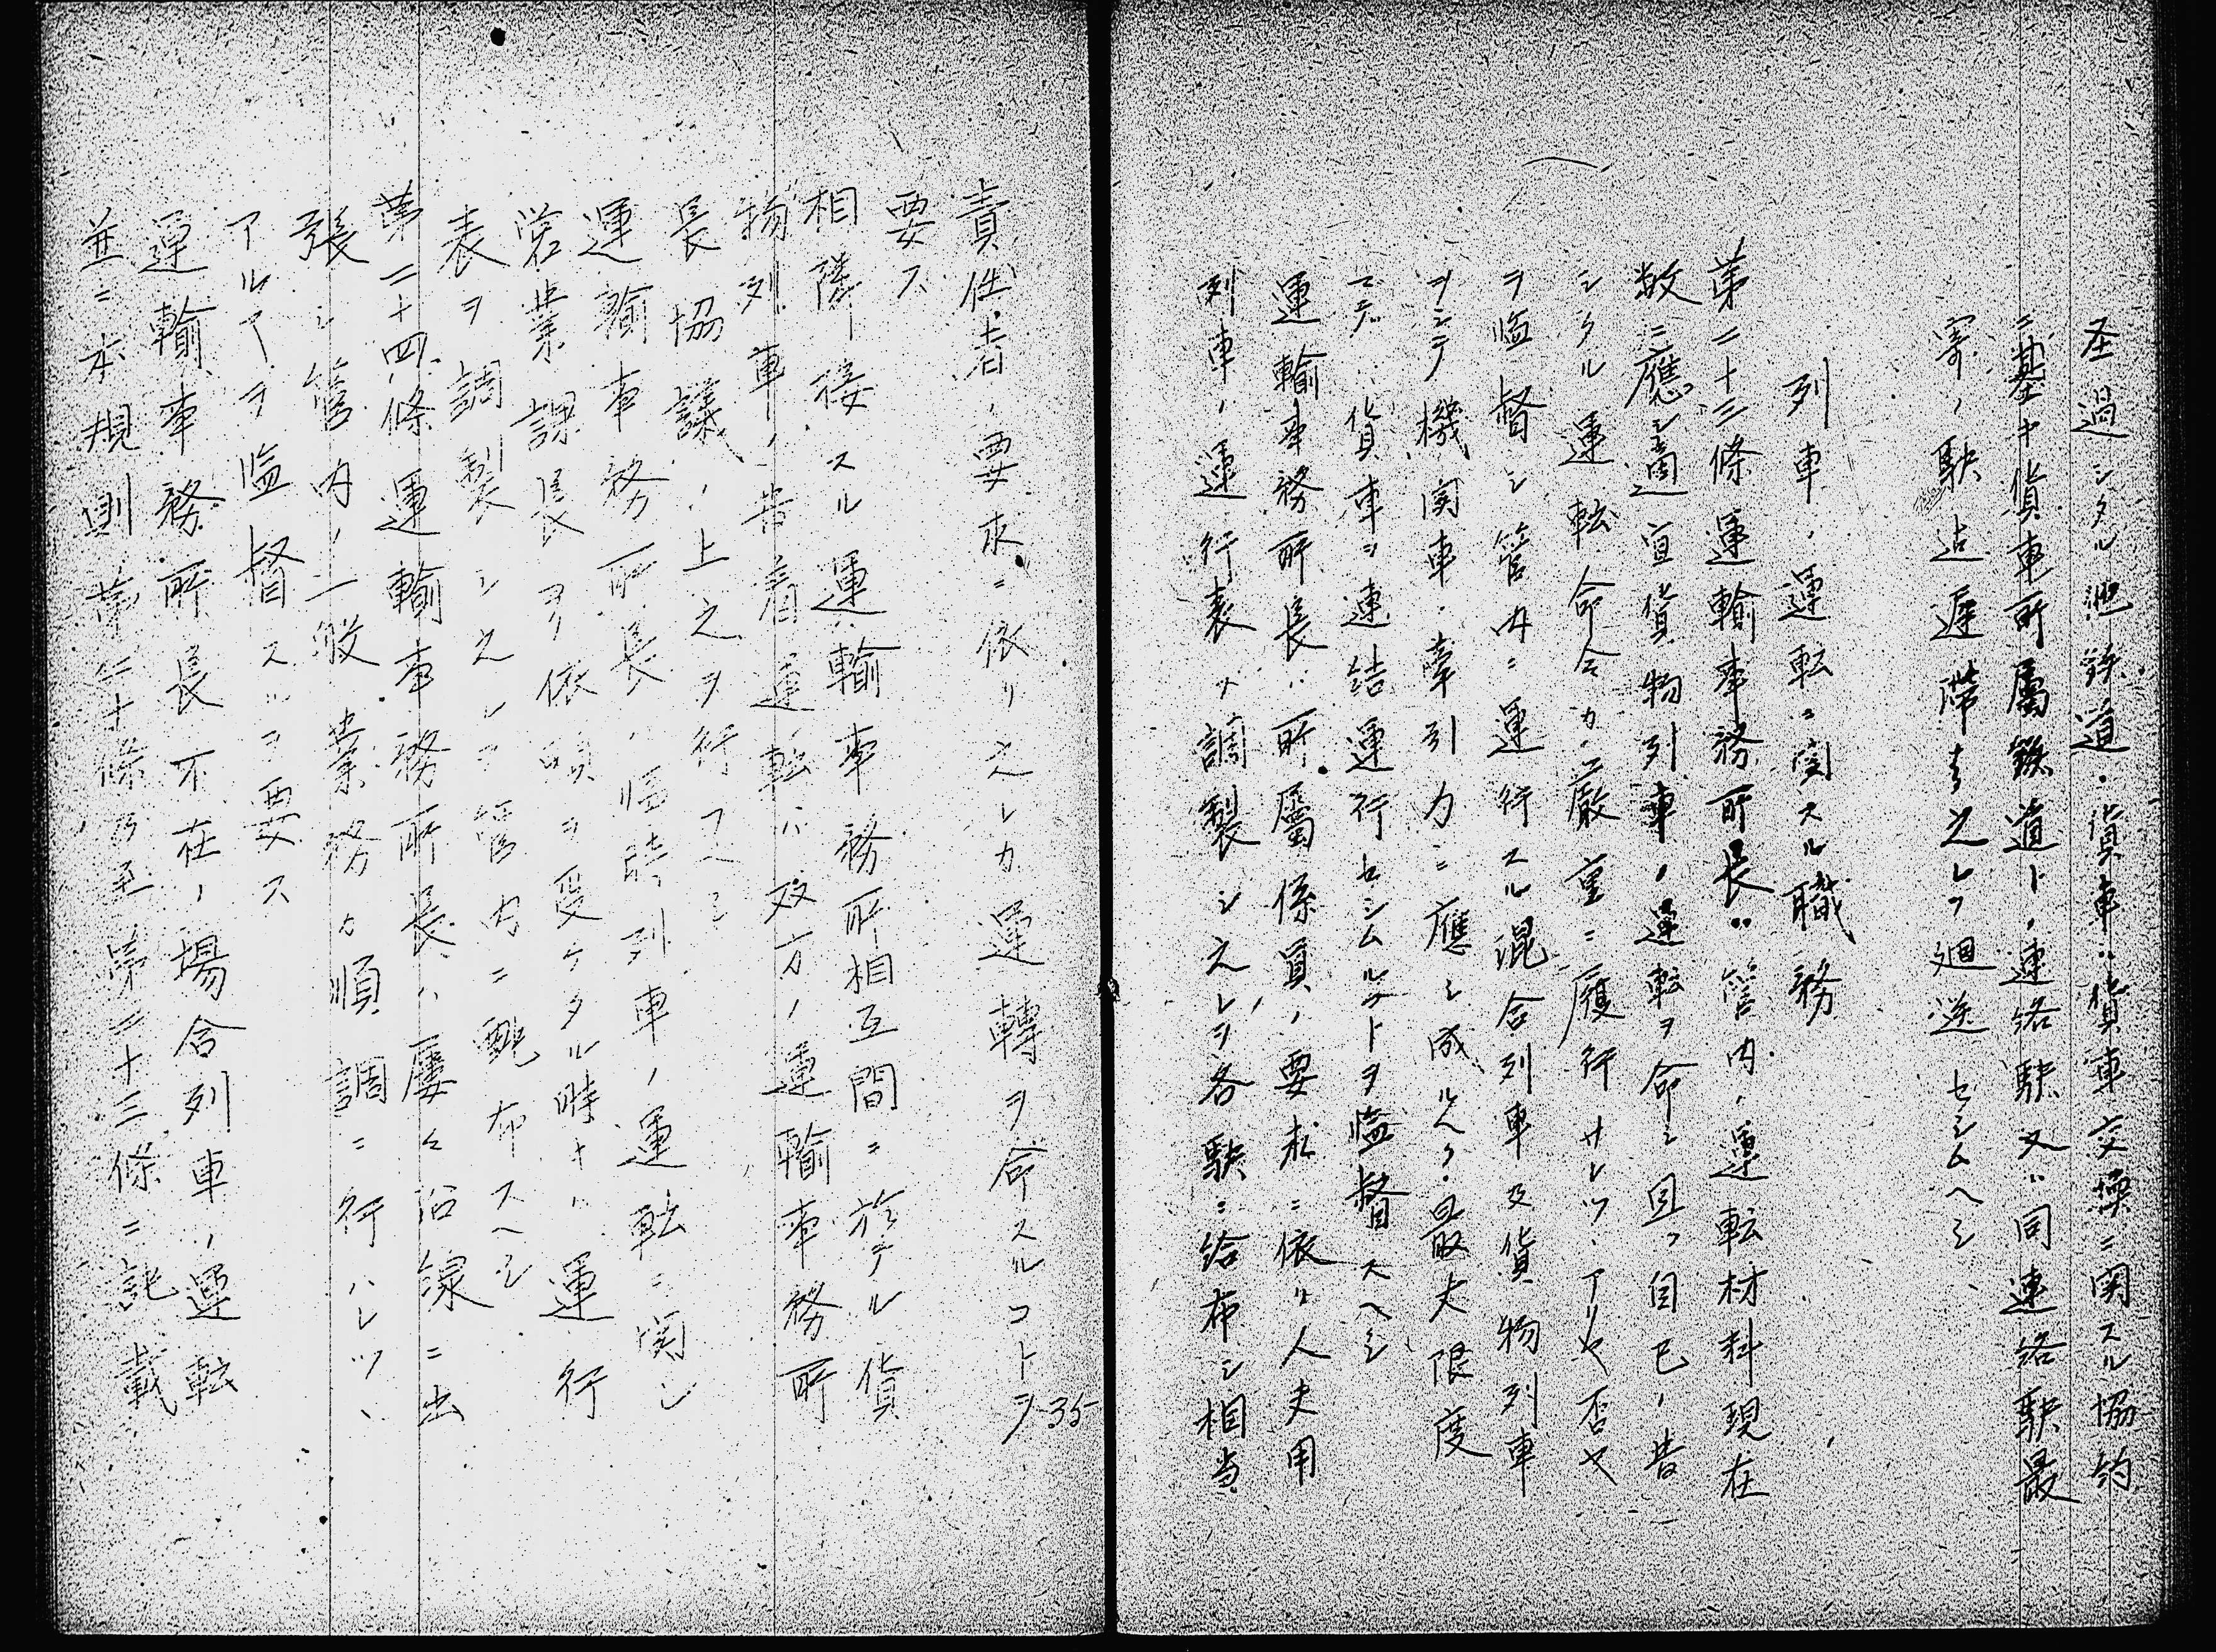 圣過シタル他鉄道、貨車ハ貨車交換ニ関スル協約
ニ基キ貨車所属鉄道トノ連絡駅又ハ同連絡駅最
寄ノ駅迄遅滞ナク之レヲ廻送セシムヘシ
列車ノ運転ニ関スル職務
第二十三條運輸事務所長ハ管内ノ運転材料現在
数ニ應シ適宜貨物列車ノ運転ヲ命シ且ツ自己ノ発
シタル運転命令カ厳重ニ履行サレツヽアリヤ否ヤ
ヲ監督シ管内ニ運行スル混合列車及貨物列車
ヲシテ機関車ノ牽引力ニ應シ成ルヘク最大限度
マデ貨車ヲ連結運行セシムルコトヲ監督スヘシ
運輸事務所長ハ所属係員ノ要求ニ依リ人夫用
列車ノ運行表ヲ調製シ之レヲ各駅ニ給布シ相当
35
責任者ノ要求ニ依リ之レカ運轉ヲ命スルコトヲ
要ス
相隣接スル運輸事務所相互間ニ於テル貨
物列車ノ発着運転ハ双方ノ運輸事務所
長協議ノ上之ヲ行フヘシ
運輸事務所長ハ臨時列車ノ運転ニ関シ
営業課長ヨリ依頼ヲ受ケタル時ハ運行
表ヲ調製シ之レヲ管内ニ配布スヘシ
第二十四條運輸事務所長ハ屡々沿線ニ出
張シ管内ノ一般業務カ順調ニ行ハレツヽ
アルヤヲ監督スルヲ要ス
運輸事務所長不在ノ場合列車ノ運転
並ニ本規則第二十條乃至第二十三條ニ記載